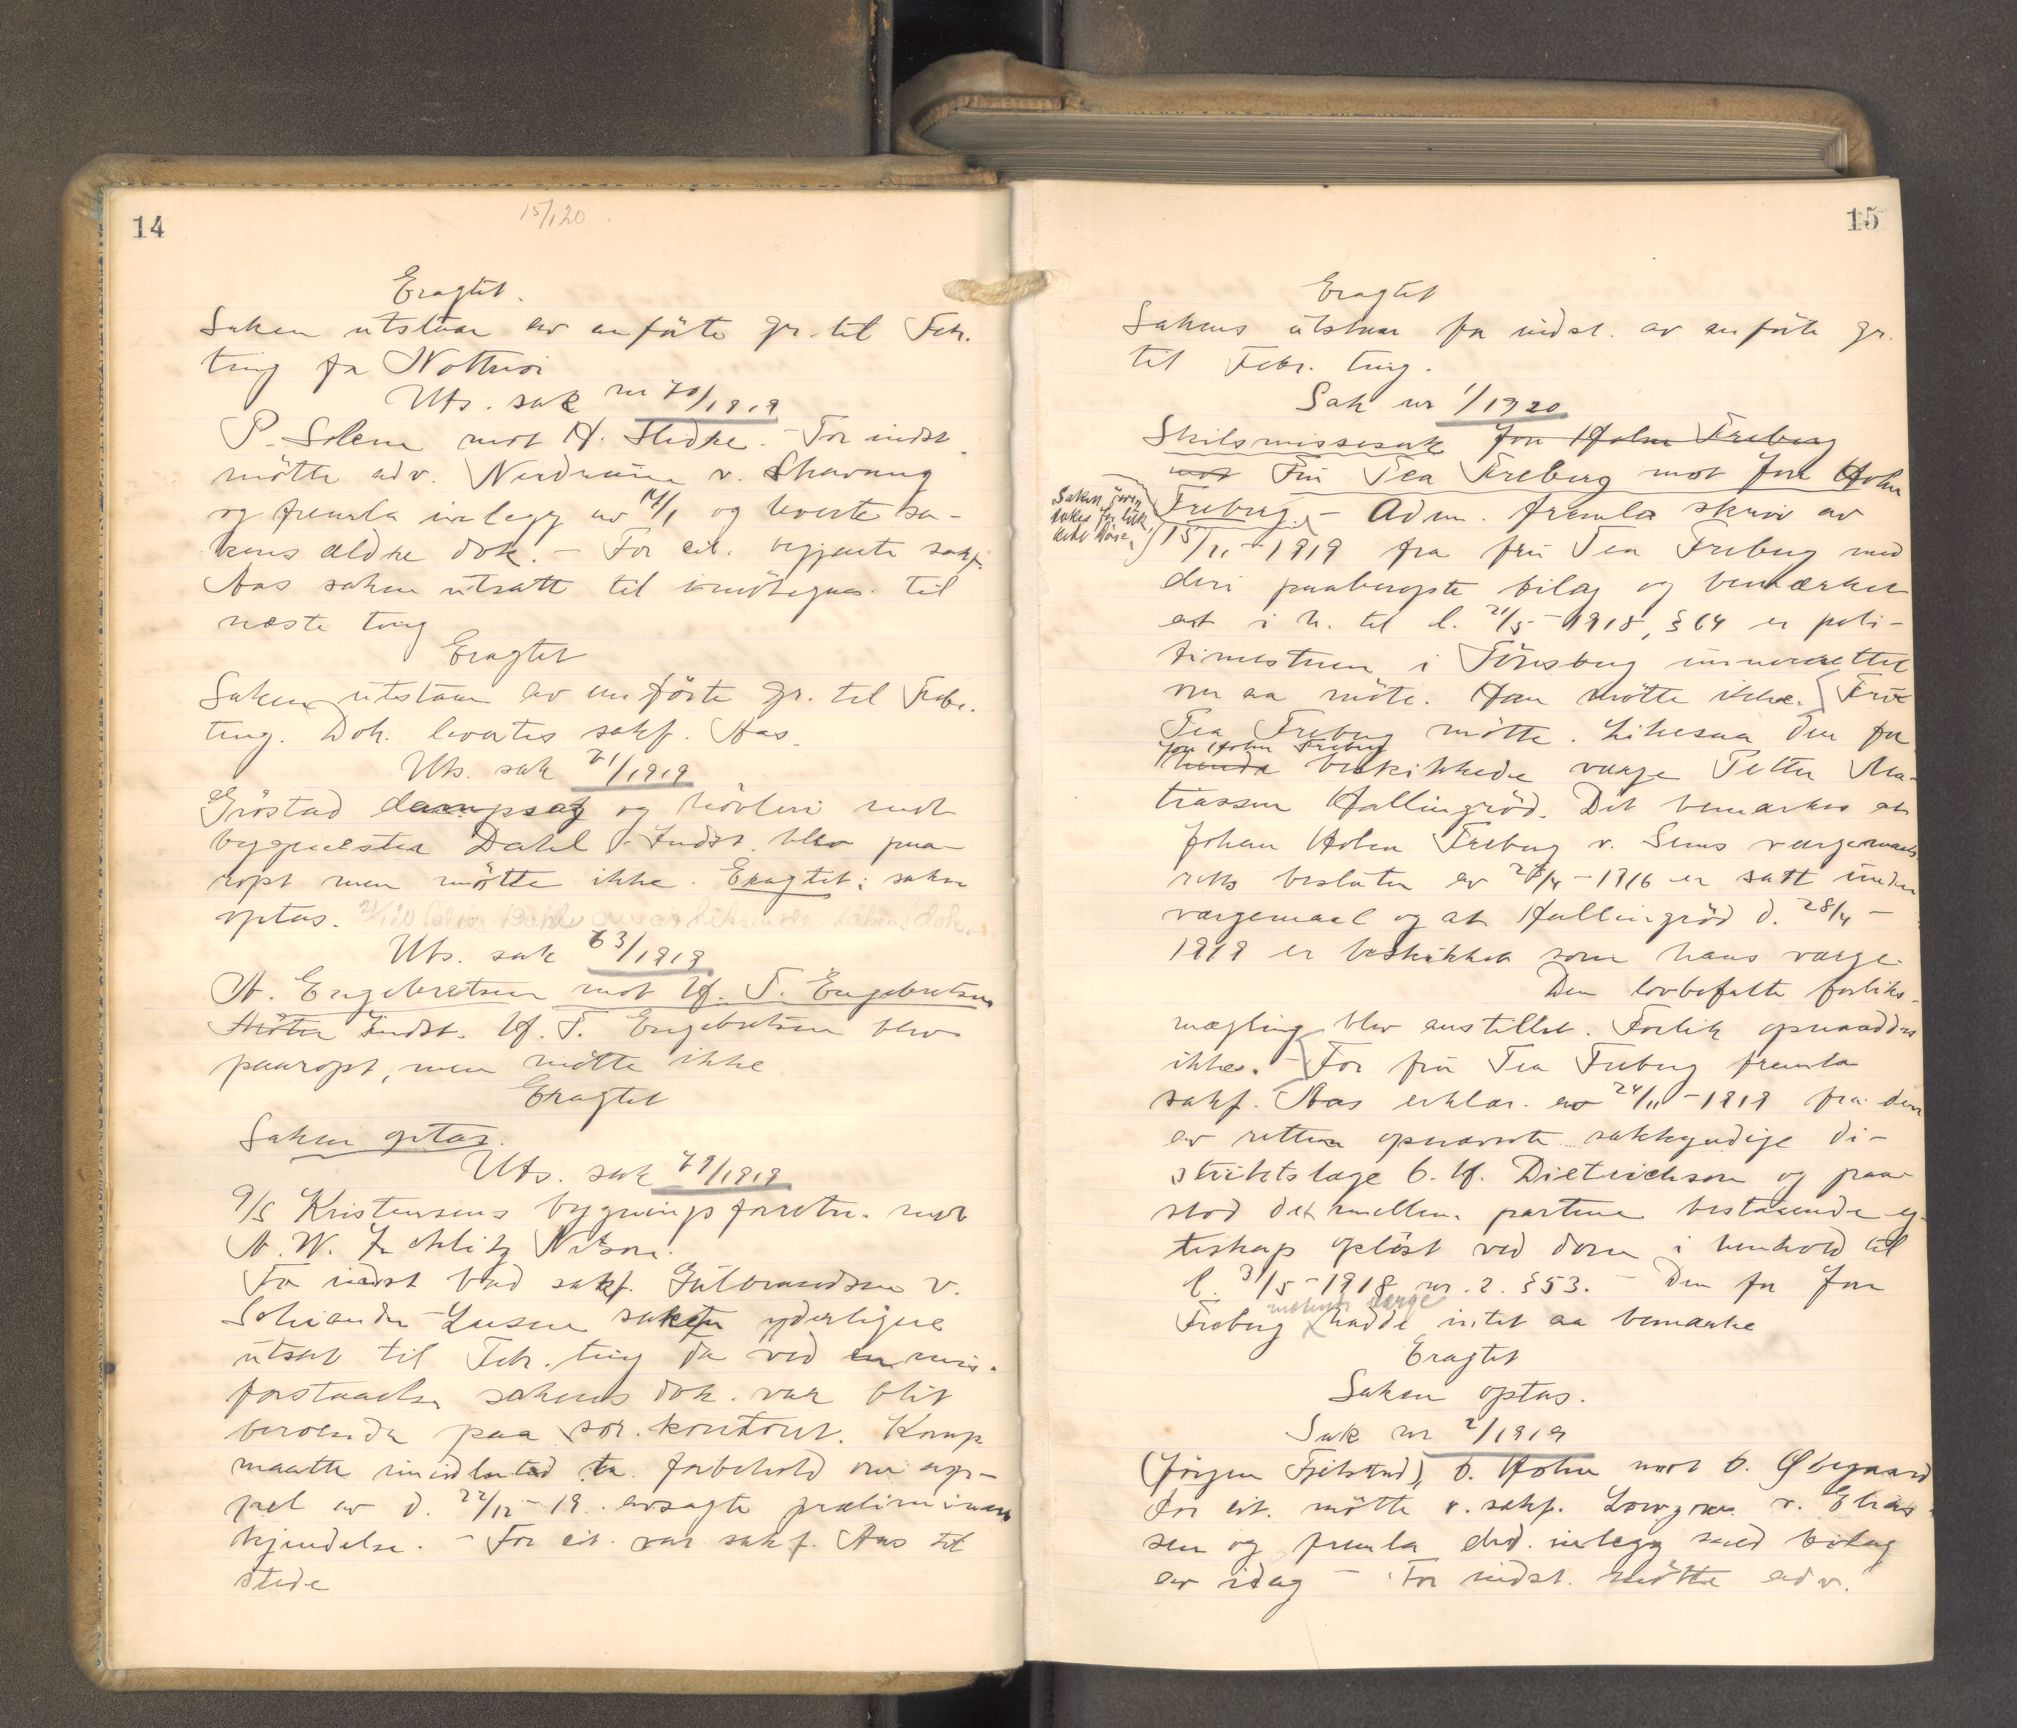 14
15/1 20
Eragtet.
Saken utstaar av anförte gr. til Febr.
ting fa Nötterö
Uts. sak nr 70/1919
P. Solem mot H. Slidre. - For indst.
mötte adv. Nerdrum v. Skavang
og fremla inlegg av 14/1 og leverte sa-
kens ældre dok. - For cit. begjærte sakf.
Aas saken utsatt til imötegaa. til
næste ting
Eragtet
Saken utstaar av anförte gr. til Febr.
ting. Dok. levertes sakf. Aas.
Uts. sak 71/1919
Gröstad dampsag og hövleri mot
bygmester Dahl. Indst. blev paa-
ropt men mötte ikke. Eragtet: saken
optas.
Uts. sak 63/1919
A. Engebretsen mot H. T. Engebretsen
Indst. H. T. Engebretsen blev
paaropt, men mötte ikke
Eragtet
Saken optas.
Uts. sak 79/1919
A/S Kristensens bygningsforretn. mot
A. W. Nilson.
For indst bad sakf. Gulbrandsen v.
Schiander Larsen saken yderligere
utsat til Febr. ting da ved en mis-
forstaaelse sakens dok. var blit
beroende paa sor. kontoret. Komp.
maatte imidlertid ta forbehold om ap-
pel av d. 22/12 - 19 avsagte præliminære
kjendelse. - For cit. var sakf. Aas til
stede
15
Eragtet
Sakens utstaar fra indst. av anförte gr.
til Febr. ting.
Sak nr 1/1920
Skilsmissesak Jon Holm Freberg
mot Fru Tea Freberg mot Jon Holm
Freberg. - Adm. fremla skriv av
Saken
for luk
kete döre
15/11 - 1919 fra fru Tea Freberg med
deri paaberopte bilag og bemærket
at i h. til l. 31/5 - 1918, § 64 er poli-
timesteren i Tönsberg underrettet
om aa möte. Han mötte ikke. Fru
Tea Freberg mötte. Likesaa den for
Jon Holm Freberg
beskikkede værge Petter Ma-
tiassen Hallingröd. Det bemærkes at
Johan Holm Freberg v. Sems værgemaals
retts beslutn av 28/4 - 1916 er satt under
værgemaal og at Hallingröd d. 28/4 -
1919 er beskikket som hans værge.
Den lovbefalte forliks-
mægling blev anstillet. Forlik opnaaddes
ikke. - For fru Tea Freberg fremla
sakf. Aas erklær. av 24/11 - 1919 fra den
av retten opnævnte sakkyndige di-
striktslæge C. H. Dietrichson og paa-
stod det mellem partene bestaaende eg-
teskap oplöst ved dom i henhold til
l. 31/5 - 1918 nr. 2. § 53. - Den for Jon
motende værge
Freberg hadde intet aa bemærke
Eragtet
Saken optas.
Sak nr 2/1919
(Jörgen Fjelstad), C. Holm mot C. Øbegaard
For cit. mötte o. sakf. Lowzow v. Elias-
sen og fremla inlegg med bilag
av idag - For indst. mötte adv.